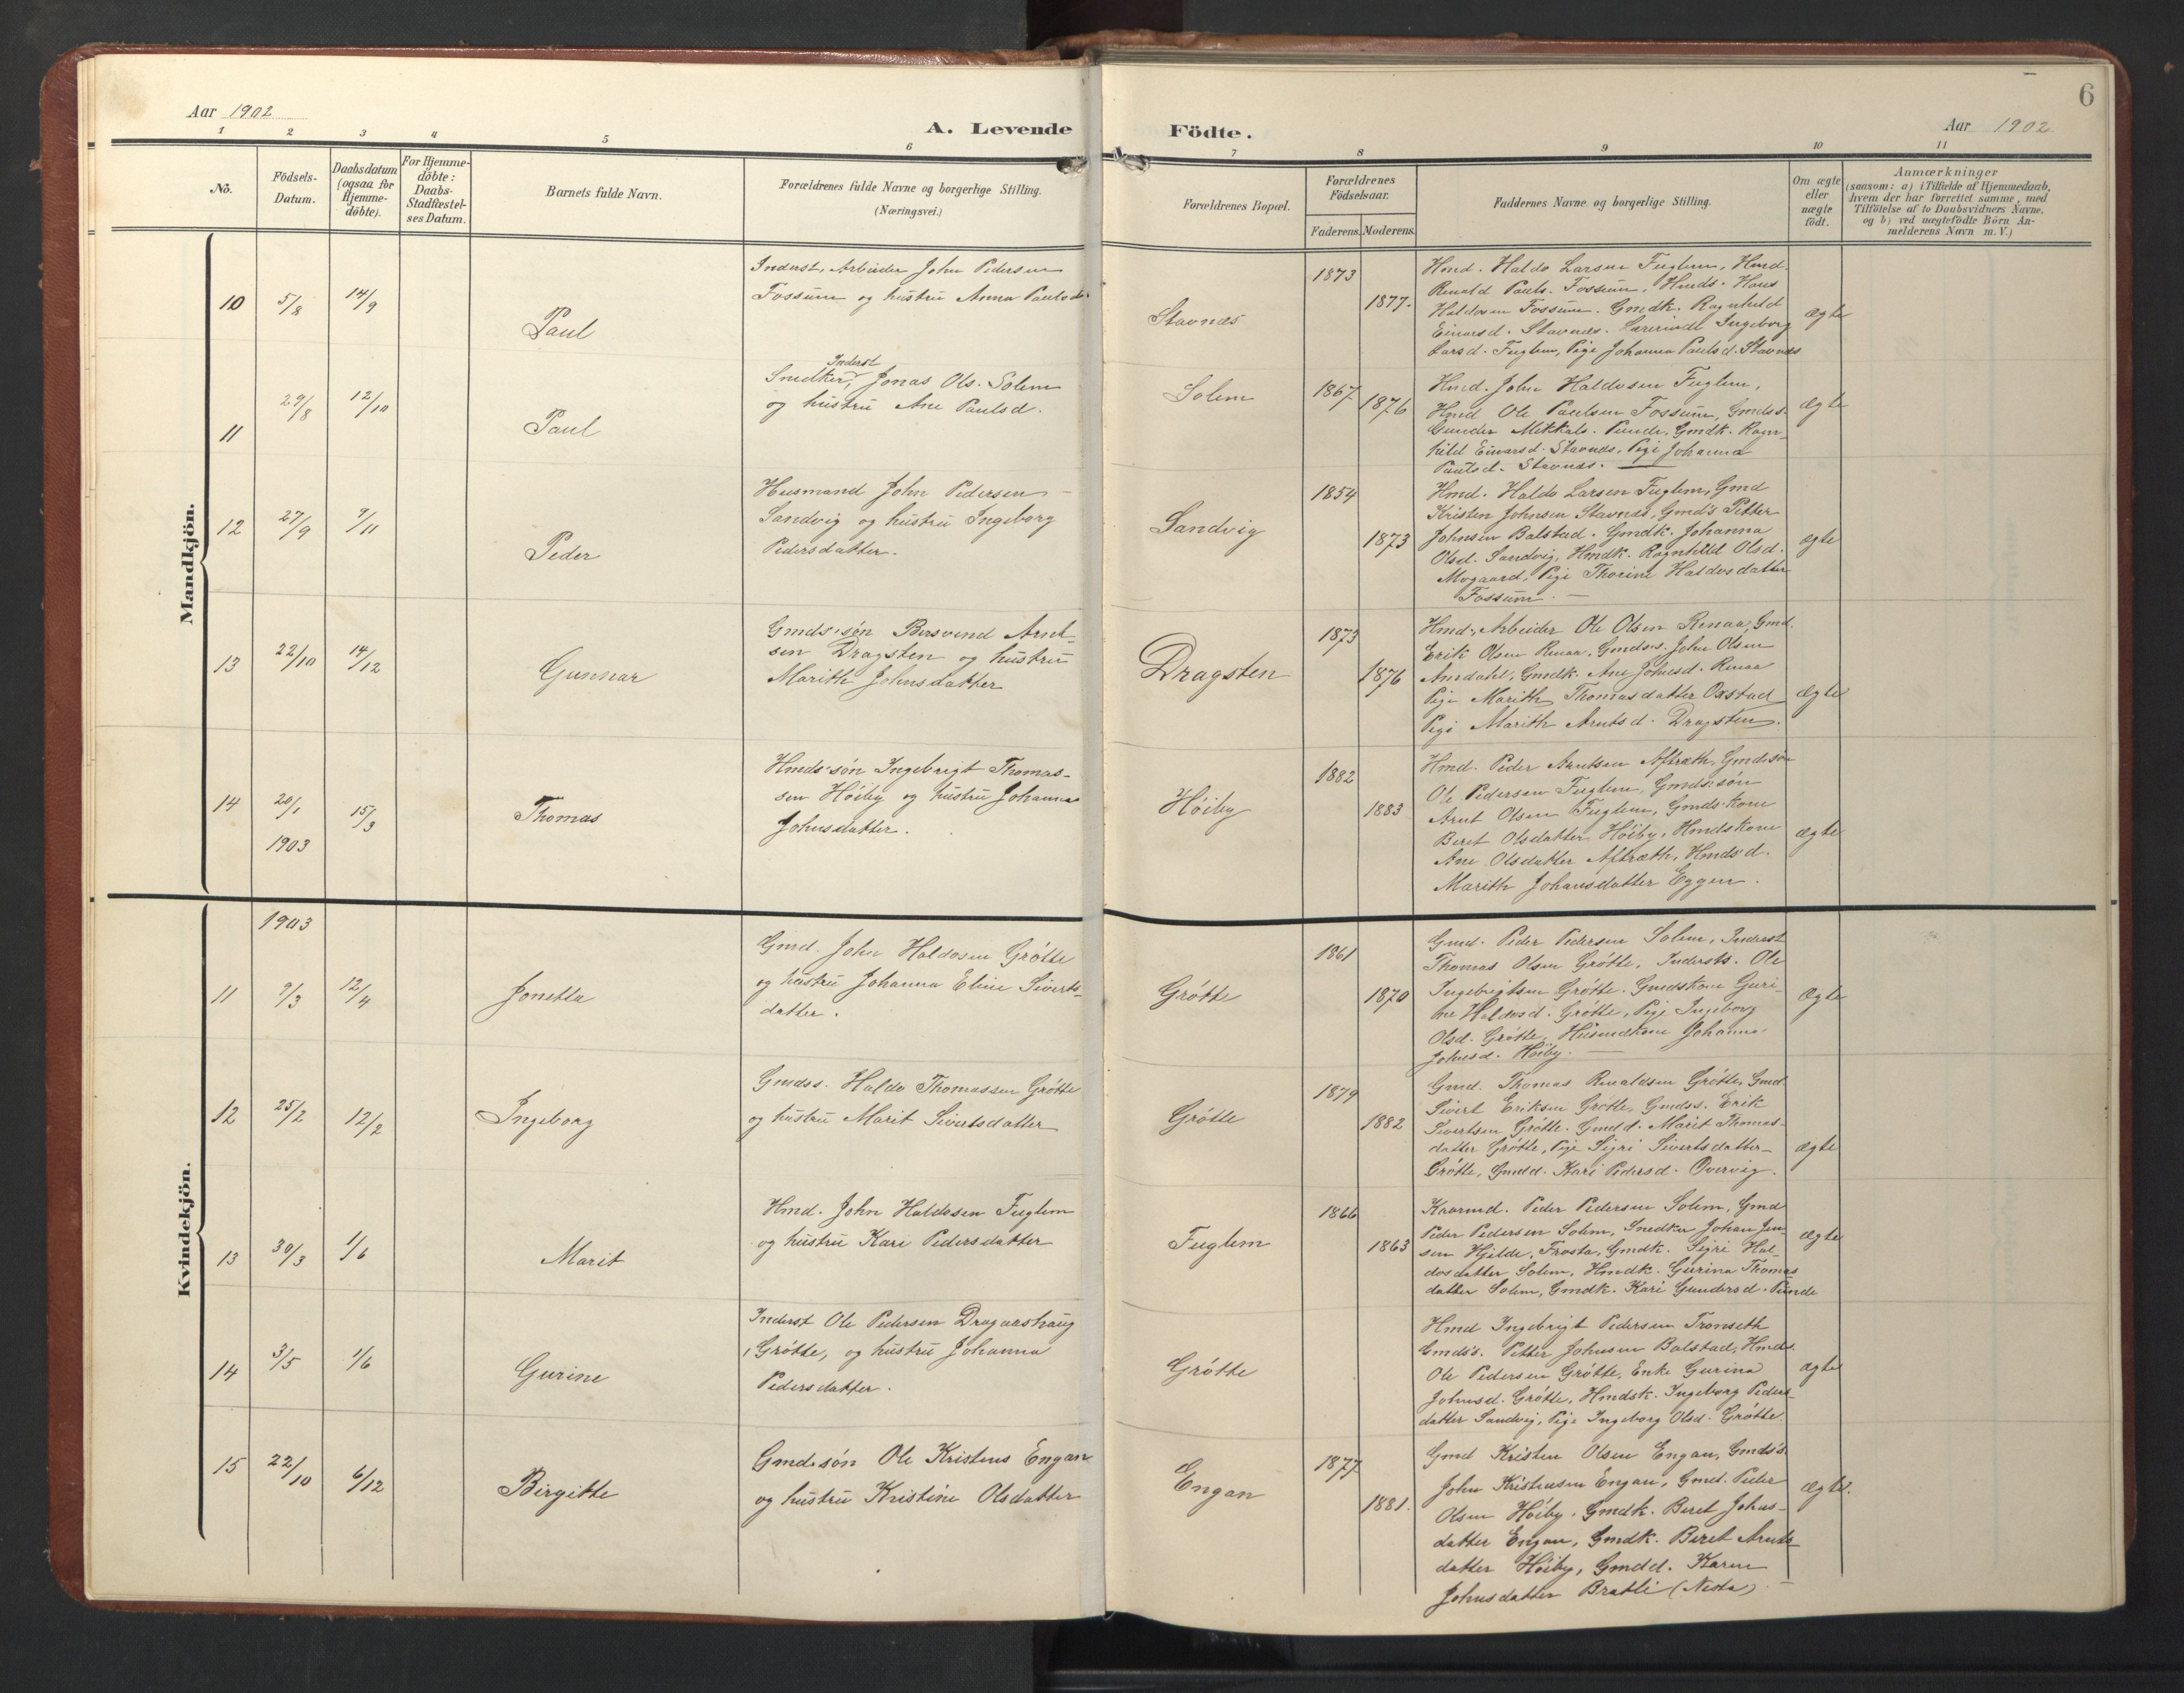 6
Aar 1902
A. Levende Födte.
Aar 1902.
1 2 3 4 5 6 7 8 9 10 11
No.
Födsels-
Datum.
Daabsdatum
(ogsaa for
Hjemme-
döbte).
For Hjemme-
döbte:
Daabs-
Stadfæstel-
ses Datum.
Barnets fulde Navn.
Forældrenes fulde Navne og borgerlige Stilling.
(Næringsvei.)
Forældrenes Bopæl.
Forældrenes
Födselsaar.
Faderens. Moderens.
Faddernes Navne og borgerlige Stilling.
Om ægte
eller
uægte
födt.
Anmærkninger
(saasom: a) i Tilfælde af Hjemmedaab,
hvem der har forrettet samme, med
Tilföielse af to Daabsvidners Navne,
og b) ved uægtefödte Börn An-
melderens Navn m. V.)
Mandkjön.
10
5/8
14/9
Paul
Inderst, Arbeider John Pedersen
Fossum og hustru Anna Paulsd.
Stavnæs
1873
1877.
Hmd. Haldo Larsen Fuglem, Hmd.
Renald Pauls. Fossum, Hmds. Hans
Haldosen Fossum. Gmdk. Ragnhild
Einarsd. Stavnæs. Ingeborg
Larsd. Fuglem, Pige Johanna Paulsd. Stavnæs
ægte
11
29/8
12/10
Paul
Inderst
Snedker, Jonas Ols. Solem
og hustru Ane Paulsd.
Solem
1867
1876
Hmd. John Haldosen Fuglem,
Hmd Ole Paulsen Fossum, Gmds.
Gunder Mikkels. Punde, Gmdk. Ragn-
hild Einarsd. Stavnæs, Pige Johanna
Paulsd. Stavnæs.
ægte
12
27/9
9/11
Peder
Husmand John Pedersen
Sandvig og hustru Ingeborg
Pedersdatter.
Sandvig
1854
1873
Hmd. Haldo Larsen Fuglem, Gmd
Kristen Johnsen Stavnæs, Gmd's Petter
Johnsen Balstad. Gmdk. Johanna
Olsd. Sandvig, Hmdk. Ragnhild Olsd.
Mogaard, Pige Thorine Haldosdatter
Fossum.
ægte
13
22/10
14/12
Gunnar
Gmds:søn Bersvend Arnt-
sen Dragsten og hustru
Marith Johnsdatter
Dragsten
1873
1876
Hmd, Arbeider Ole Olsen Renaa, Gmd.
Erik Olsen Renaa, Gmds:s. John Olsen
Amdahl, Gmdk. Ane Johnsd. Renaa
Pige Marith Thomasdatter Oxstad
Pige Marith Arntsd. Dragsten.
ægte
14
20/1
1903
15/3
Thomas
Hmds:søn Ingebrigt Thomas-
sen Höiby og hustru Johanna
Johnsdatter.
Höiby
1882
1883
Hmd. Peder Arntsen Aftræth, Gmdssøn
Ole Pedersen Fuglem, Gmds:søn
Arnt Olsen Fuglem, Gmds:kone
Beret Olsdatter Höiby, Hmdskone
Ane Olsdatter Aftræth, Hmds:d.
Marith Johansdatter Eggen.
ægte
Kvindekjön.
1903
11
9/3
12/4
Jonetta
Gmd. John Haldosen Grøtte
og hustru Johanna Eline Siverts-
datter.
Grøtte
1861
1870
Gmd. Peder Pedersen Solem, Inderst
Thomas Olsen Grøtte, Indersts. Ole
Ingebrigtsen Grøtte. Gmdskone Guri-
ne Haldosd. Grøtte, Pige Ingeborg
Olsd. Grøtte, Husmdkone Johanna
Johnsd. Höiby.
Ægte
12
25/2
12/2
Ingeborg
Gmdss. Haldo Thomassen Grøtte
og hustru Marit Sivertsdatter
Grøtte
1879
1882
Gmd. Thomas Renaldsen Grøtte, Gmd.
Sivert Eriksen Grøtte, Gmdss. Erik
Sivertsen Grøtte. Gmdd. Marit Thomas-
datter Grøtte, Pige Sigri Sivertsdatter
Grøtte, Gmdd. Kari Pedersd. Overvig.
ægte
13
30/3
1/6
Marit
Hmd. John Haldosen Fuglem
og hustru Kari Pedersdatter
Fuglem
1866
1863
Kaarmd. Peder Pedersen Solem, Gmd
Peder Pedersen Solem, Snedker Johan Jen-
sen Hjelde, Frosta, Gmdk. Sigri Hal-
dosdatter Solem, Hmdk. Gurina Thomas
datter Solem, Gmdk. Kari Gundersd. Punde
ægte
14
3/5
1/6
Gurine
Inderst Ole Pedersen Dragaashaug
, Grøtte, og hustru Johanna
Pedersdatter.
Grøtte
Hmd Ingebrigt Pedersen Tronseth
Gmds's. Petter Johnsen Balstad, Hmds.
Ole Pedersen Grøtte, Enke Gurina
Johnsd. Grøtte, Hmdsk. Ingeborg Peders-
datter Sandvig, Pige Ingeborg Olsd. Grøtte.
ægte
15
22/10
6/12
Birgitte
Gmdssøn Ole Kristens Engan
og hustru Kristine Olsdatter
Engan
1877
1881.
Gmd Kristen Olsen Engan, Gmds's.
John Kristensen Engan, Gmd. Peder
Olsen Höiby, Gmdk. Beret Johns-
datter Engan, Gmdk. Beret Arnts-
datter Höiby, Gmdd. Karen
Johnsdatter Bratli (Nesta)
ægte.